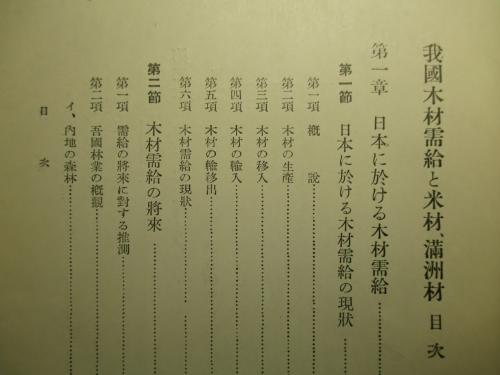 我國木材需給と米材、滿洲材 目次
第一章 日本に於ける木材需給
第一節 日本に於ける木材需給の現狀
第一項 概說
第二項 木材の生產
第三項 木材の移入
第四項 木材の輸入
第五項 木材の輸移出
第六項 木材需給の現狀
第二節 木材需給の將來
第一項 需給の將來に對する推測
第二項 吾國林業の概觀
イ、內地の森林
目次